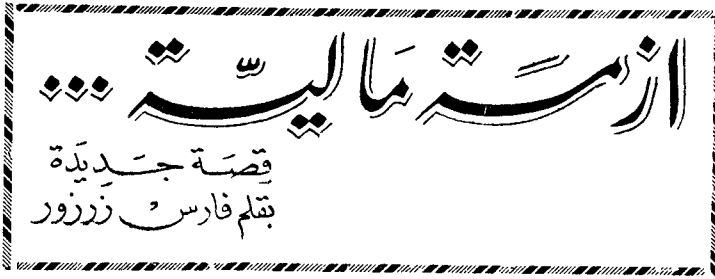 ازمة مالية ...
قصة جديدة
بقلم فارس زرزور